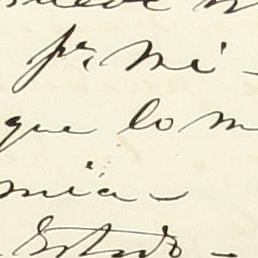 pr. mi-
que lo m
mia-
Estado-